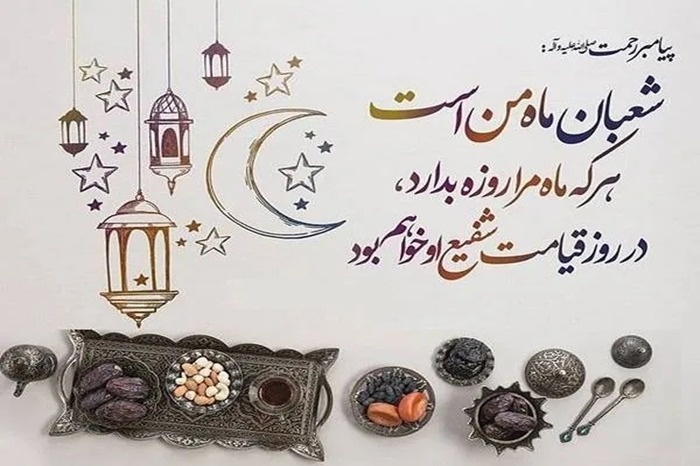 پیامبر رحمت صلی الله علیه و آله:
شعبان ماه من است
هر که ماه مرا روزه بدارد،
در روز قیامت شفیع او خواهم بود